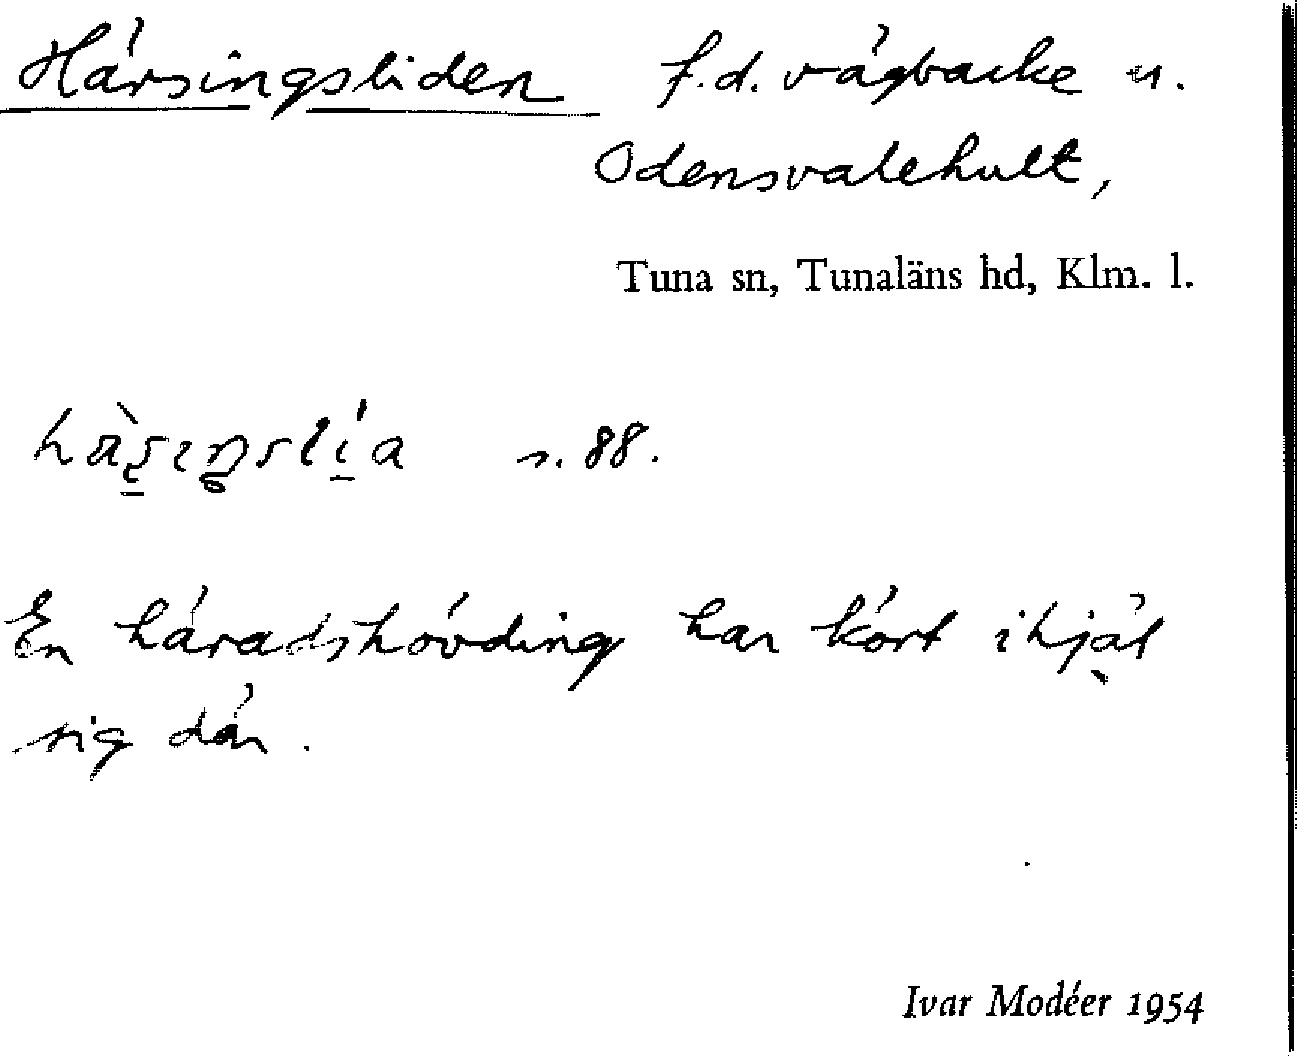 Härsingsliden f.d. vägbacke u.
Odensvalehult,
Tuna sn, Tunaläns hd, Klm. l.
s. 88.
En häradshövding har kört ihjäl
sig där.
Ivar Modéer 1954